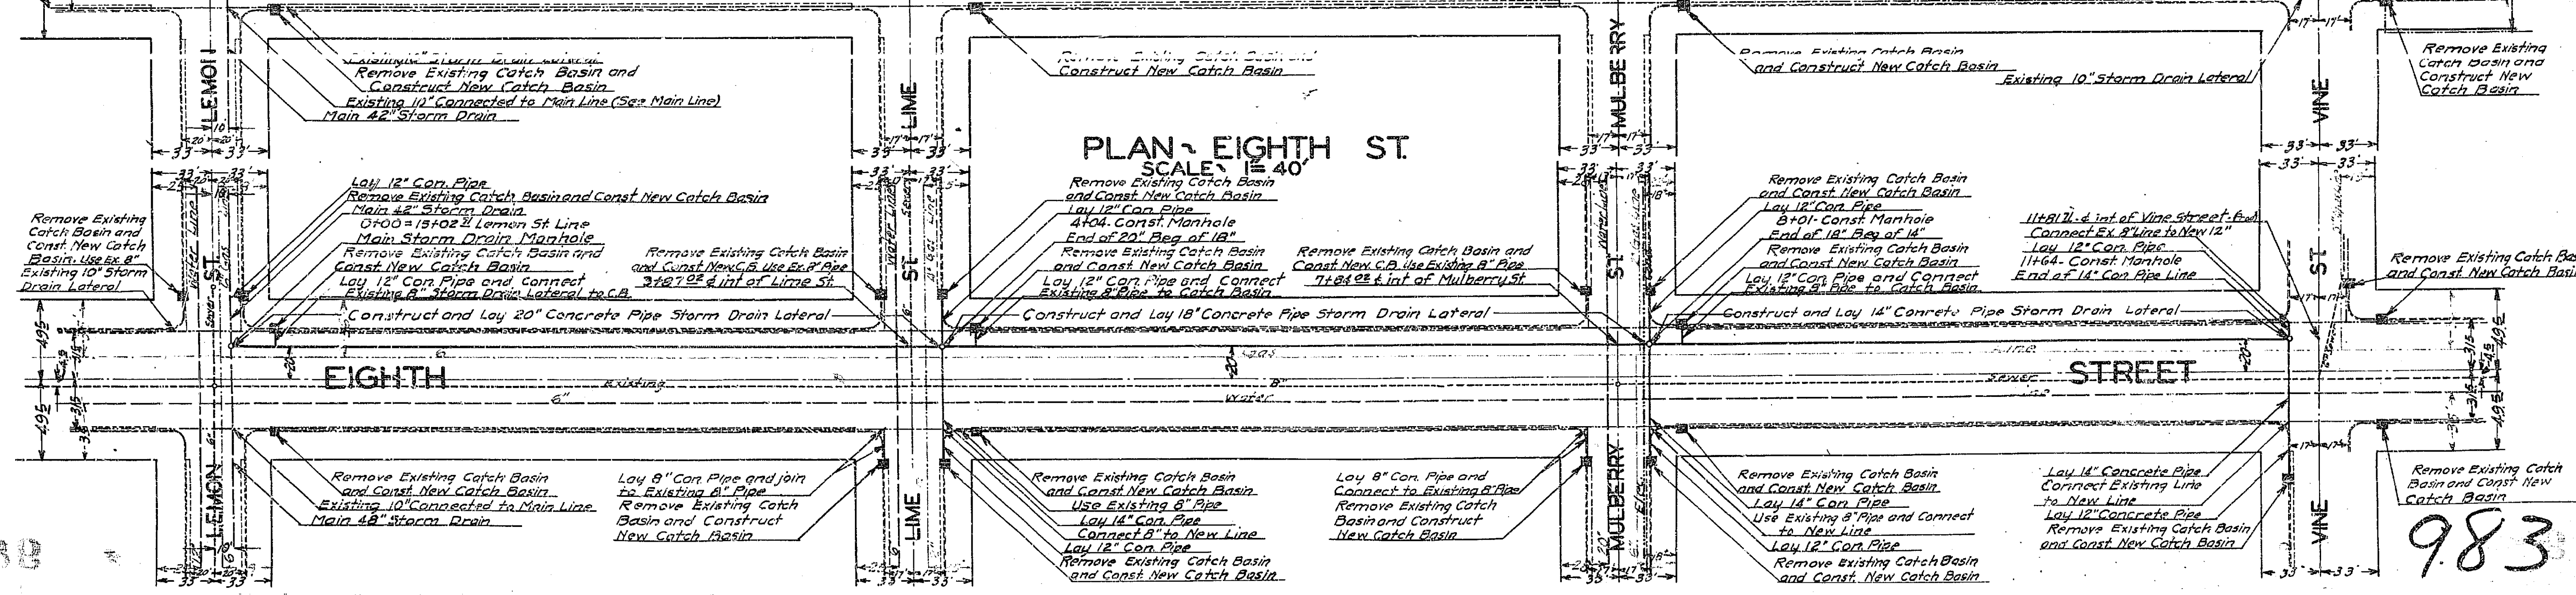 LEMON
Remove Existing Catch Basin and
Construct New Catch Basin
Existing 10" Connected to Main Line (See Main Line)
Main 42" Storm Drain
LIME
Construct New Catch Basin
MULBERRY
Remove Existing Catch Basin
and Construct New Catch Basin
Existing 10" Storm Drain Lateral
VINE
Remove Existing
Catch Basin and
Construct New
Catch Basin
PLAN ~ EIGHTH ST.
SCALE ~ 1"= 40'
Remove Existing
Catch Basin and
Const. New Catch
Basin. Use Ex. 8"
Existing 10" Storm
Drain Lateral
ST.
Lay 12" Con. Pipe
Remove Existing Catch Basin and Const New Catch Basin
Main 42" Storm Drain
Lemon St. Line
Main Storm Drain Manhole
Remove Existing Catch Basin and
Const New Catch Basin
Lay 12" Con Pipe and Connect
Existing 8" Storm Drain Lateral to C.B.
Construct and Lay 20" Concrete Pipe Storm Drain Lateral
Remove Existing Catch Basin
and Const New C.B. Use Ex. 8" Pipe
3+87.02 ¢ int of Lime St.
ST
Remove Existing Catch Basin
and Const New Catch Basin
Lay 12" Con Pipe
4+04. Const. Manhole
End of 20" Beg of 18"
Remove Existing Catch Basin
and Const New Catch Basin
Lay 12" Con Pipe and Connect
Existing 8" Pipe to Catch Basin
Construct and Lay 18" Concrete Pipe Storm Drain Lateral
Remove Existing Catch Basin and
Const New C.B. Use Existing 8" Pipe
7+84.02 ¢ int of Mulberry St.
ST
Remove Existing Catch Basin
and Const New Catch Basin
Lay 12" Con Pipe
8+01- Const Manhole
End of 18" Beg of 14"
Remove Existing Catch Basin
and Const New Catch Basin
Lay 12" Con Pipe and Connect
Existing 8" Pipe to Catch Basin
Construct and Lay 14" Conrete Pipe Storm Drain Lateral
¢ int of Vine Street-End
Connect Ex. 8" Line to New 12"
Lay 12" Con. Pipe
11+64- Const Manhole
End of 14" Con Pipe Line
ST
Remove Existing Catch Bas
and Const New Catch Basi
6"
Gas
Line
EIGHTH
Existing
8"
Sewer
STREET
6"
Water
LEMON
Remove Existing Catch Basin
and Const. New Catch Basin
Existing 10" Connected to Main Line
Main 48" Storm Drain
Lay 8" Con Pipe and join
to Existing 8" Pipe
Remove Existing Catch
Basin and Construct
New Catch Basin
LIME
Remove Existing Catch Basin
and Const New Catch Basin
Use Existing 6" Pipe
Lay 14" Con. Pipe
Connect 8" to New Line
Lay 12" Con. Pipe
Remove Existing Catch Basin
and Const. New Catch Basin
Lay 8" Con. Pipe and
Connect to Existing 8" Pipe
Remove Existing Catch
Basin and Construct
New Catch Basin
MULBERRY
Remove Existing Catch Basin
and Const. New Catch Basin
Lay 14" Con Pipe
Use Existing 8" Pipe and Connect
to New Line
Lay 12" Con Pipe
Remove Existing Catch Basin
and Const. New Catch Basin
Lay 14" Concrete Pipe
Connect Existing Line
to New Line
Lay 12" Concrete Pipe
Remove Existing Catch Basin
and Const. New Catch Basin
VINE
Remove Existing Catch
Basin and Const New
Catch Basin
983